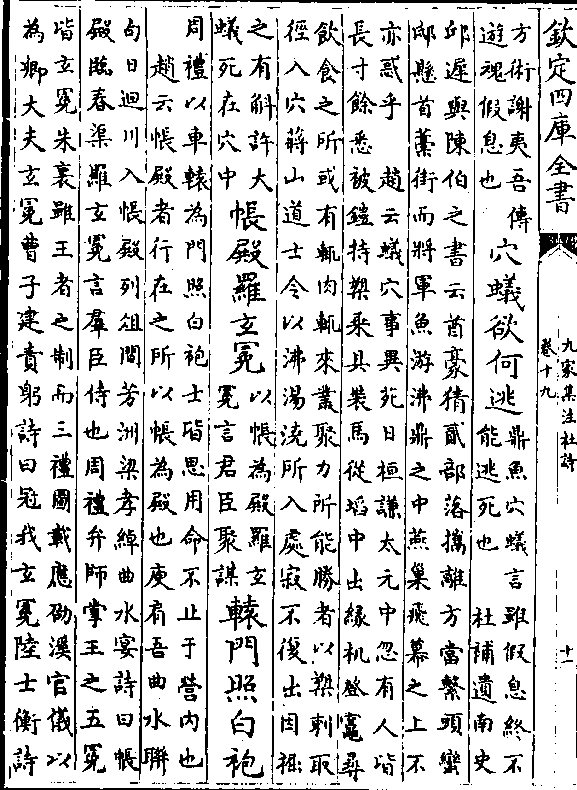 欽定四庫全書
九家集注杜詩
卷十九
十一
方術謝夷吾傳
遊魂假息也
穴蟻欲何逃
鼎魚穴蟻言雖假息終不
能逃死也 杜補遺南史
邱遲與陳伯之書云酋豪猜貳部落攜離方當繫頸蠻
邸懸首藁街而將軍魚游沸鼎之中燕巢飛幕之上不
亦惑乎 趙云蟻穴事異苑曰桓謙太元中忽有人皆
長寸餘悉被鎧持槊乘具裝馬從埳中出緣机登竈尋
飲食之所或有𠷣肉輒來叢聚力所能勝者以槊刺取
徑入穴蔣山道士令以沸湯澆所入處寂不復出因掘
之有斛許大
蟻死在穴中
帳殿羅玄冕
以帳為殿羅玄
冕言君臣聚謀
轅門照白袍
周禮以車轅為門照白袍士皆思用命不止于營內也
趙云帳殿者行在之所以帳為殿也庾肩吾曲水聯
句曰迴川入帳殿列俎間芳洲梁孝綽曲水宴詩曰帳
殿臨春渠羅玄冕言羣臣侍也周禮弁師掌王之五冕
皆玄冕朱裏雖王者之制而三禮圖載應劭漢官儀以
為卿大夫玄冕曹子建責躬詩曰冠我玄冕陸士衡詩